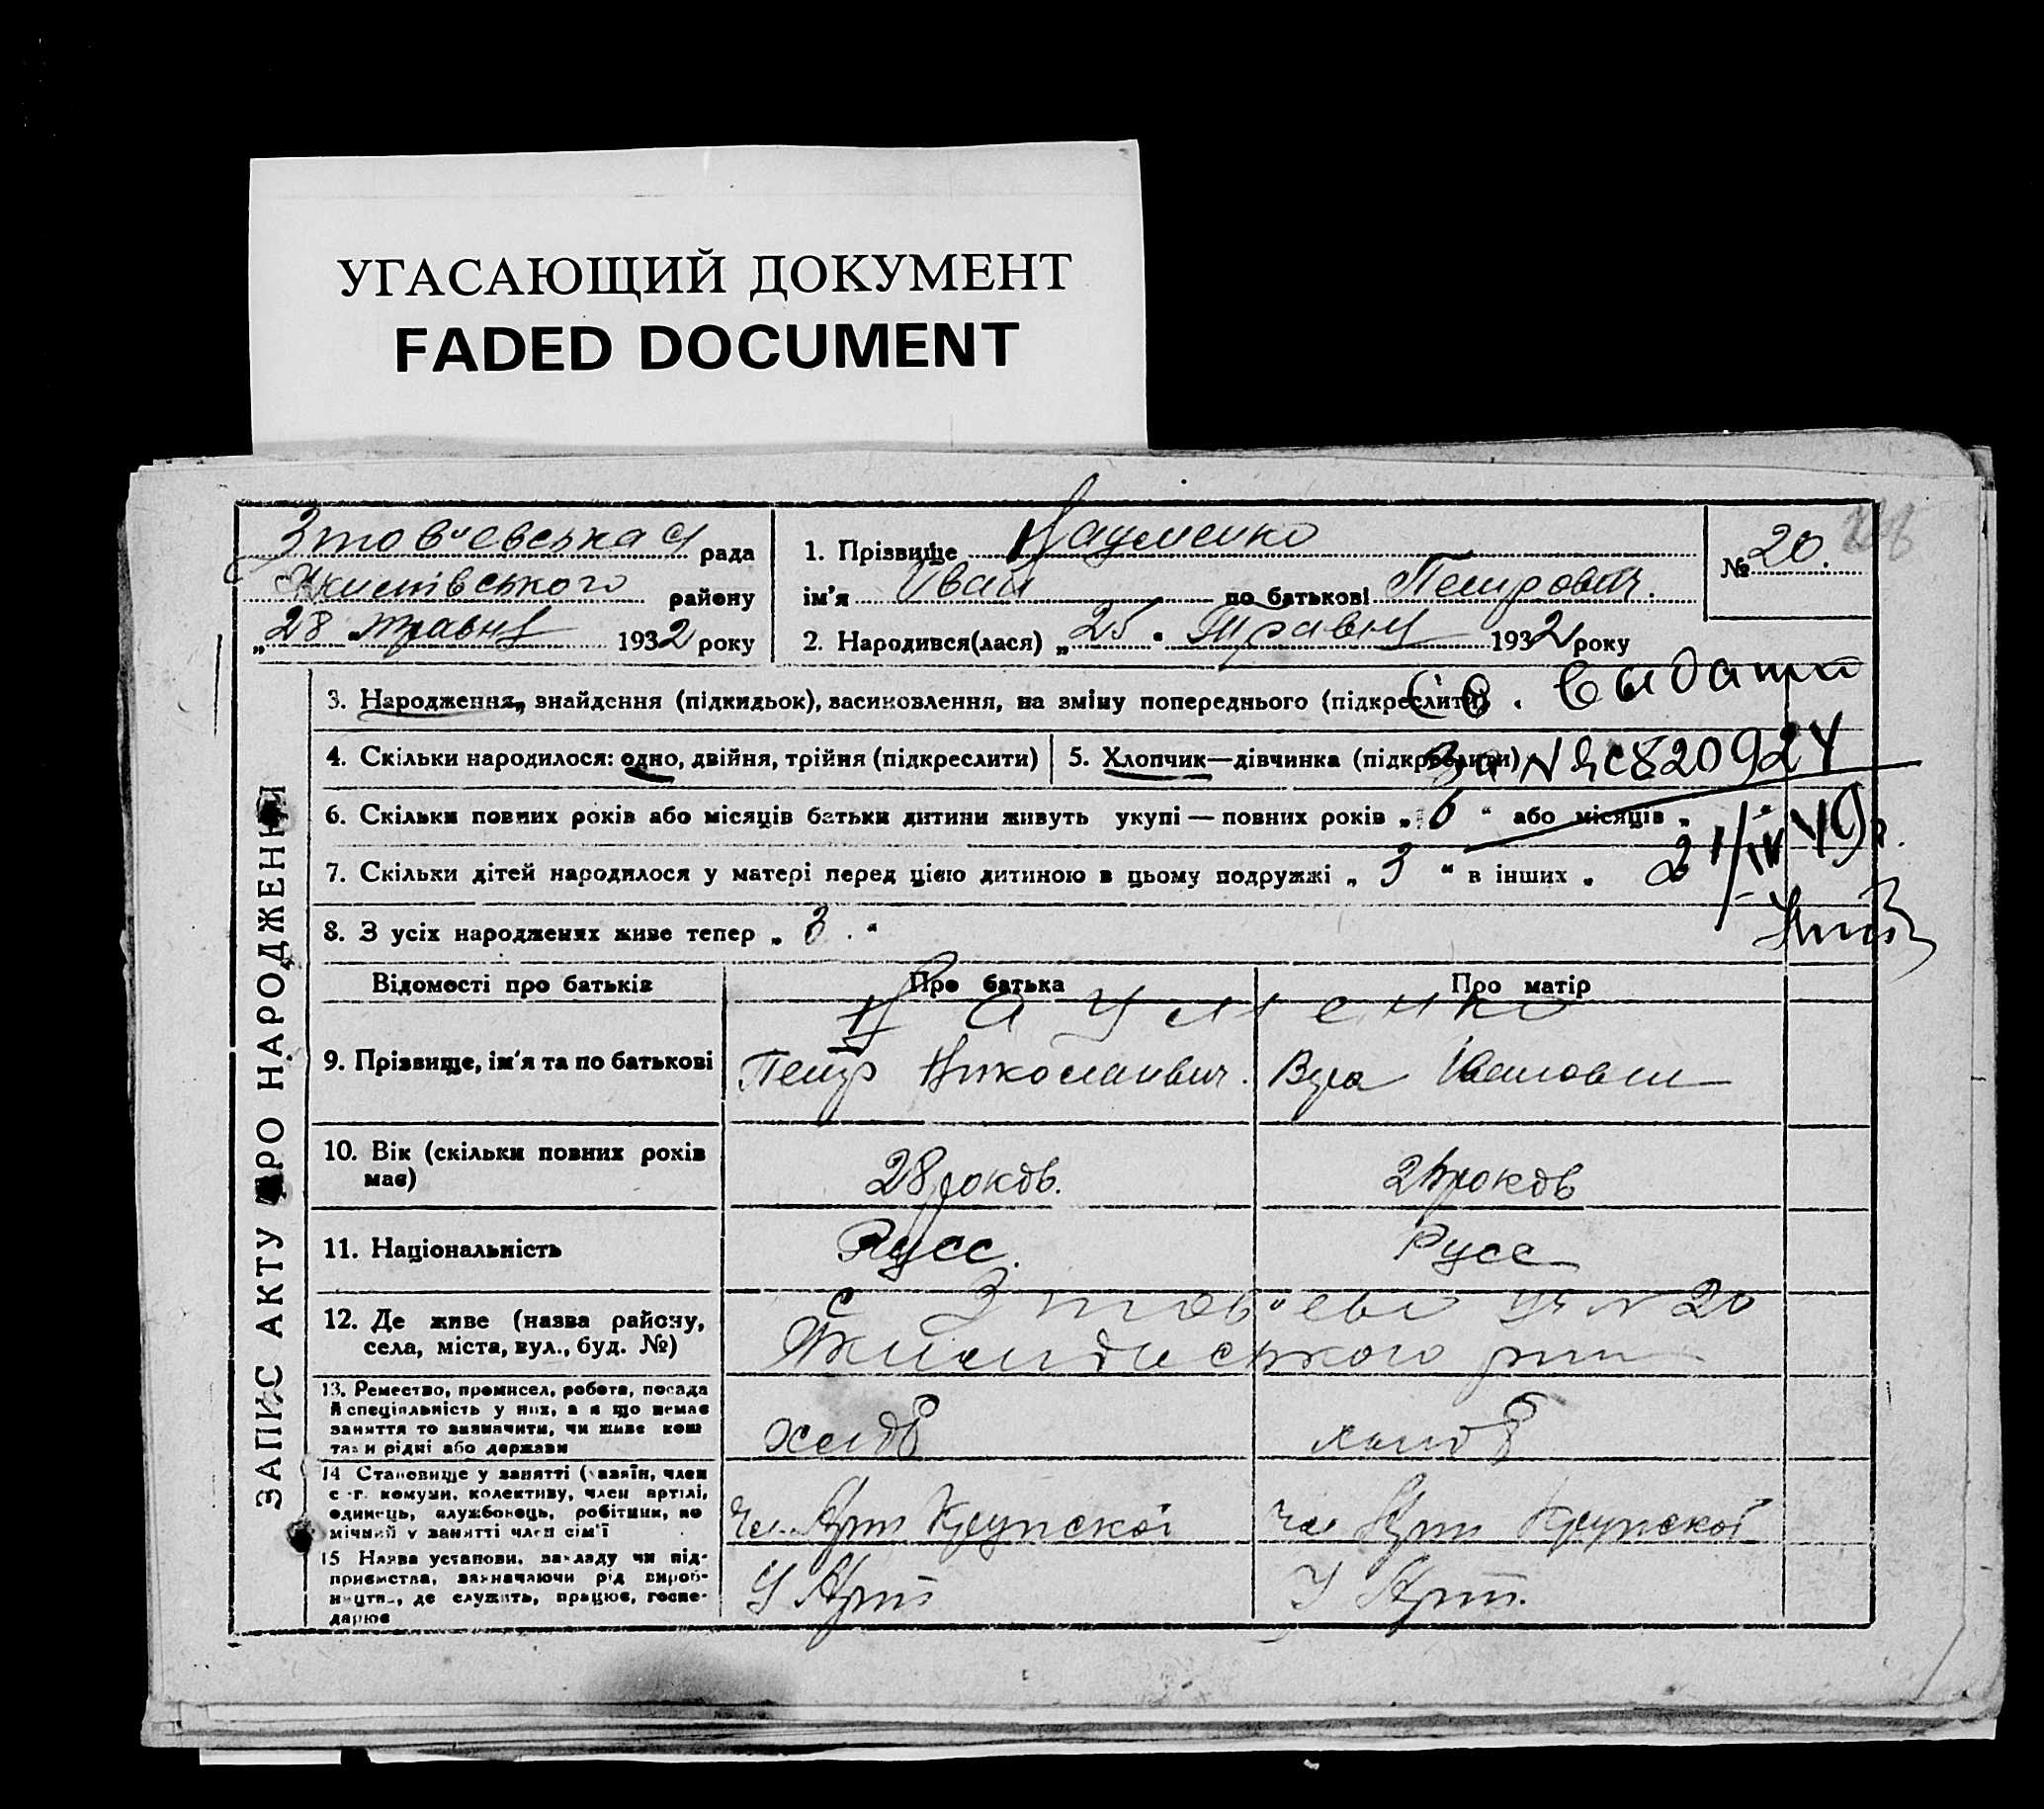 УГАСАЮЩИЙ ДОКУМЕНТ
FADED DOCUMENT
ЗАПИС АКТУ ПРО НАРОДЖЕННЯ
рада
району
„28“ травня 1932 року
1. Прізвище Науменко
ім'я Іван по батькові Петрович.
2. Народився(лася) „25“ Травня 1932 року
№ 20.
3. Народження, знайдення (підкидьок), засиновлення, на зміну попереднього (підкреслити)
Св. выдано
4. Скільки народилося: одно, двійня, трійня (підкреслити)
5. Хлопчик—дівчинка (підкреслити)
за № ЯС 820924
6. Скільки повних років або місяців батьки дитини живуть укупі — повних років „6“ або місяців „
21/IV 49 г.
7. Скільки дітей народилося у матері перед цією дитиною в цьому подружжі „3“ в інших „
8. З усіх народженях живе тепер „3.“
Відомості про батьків
Про батька
Про матір
Науменко
9. Прізвище, ім'я та по батькові
Петр Николаивич.
Вера Івановна
10. Вік (скільки повних років має)
28 роков.
роков
11. Національність
Русс.
Русс
12. Де живе (назва району, села, міста, вул., буд. №)
с № 20
13. Ремество, промисел, робота, посада й спеціяльність у них, а я що немає заняття то зазначити, чи живе кош тами рідні або держави
14 Становище у занятті (хазяїн, член с.-г. комуни, колективу, член артілі, одинець, службовець, робітник, помічний у занятті член сім'ї
Чл. Арт Крупскої
Чл Арт Крупскої
15 Назва установи, закладу чи підприємства, зазначаючи рід виробництва, де служить, працює, госпедарює
У Арт
У Арт.